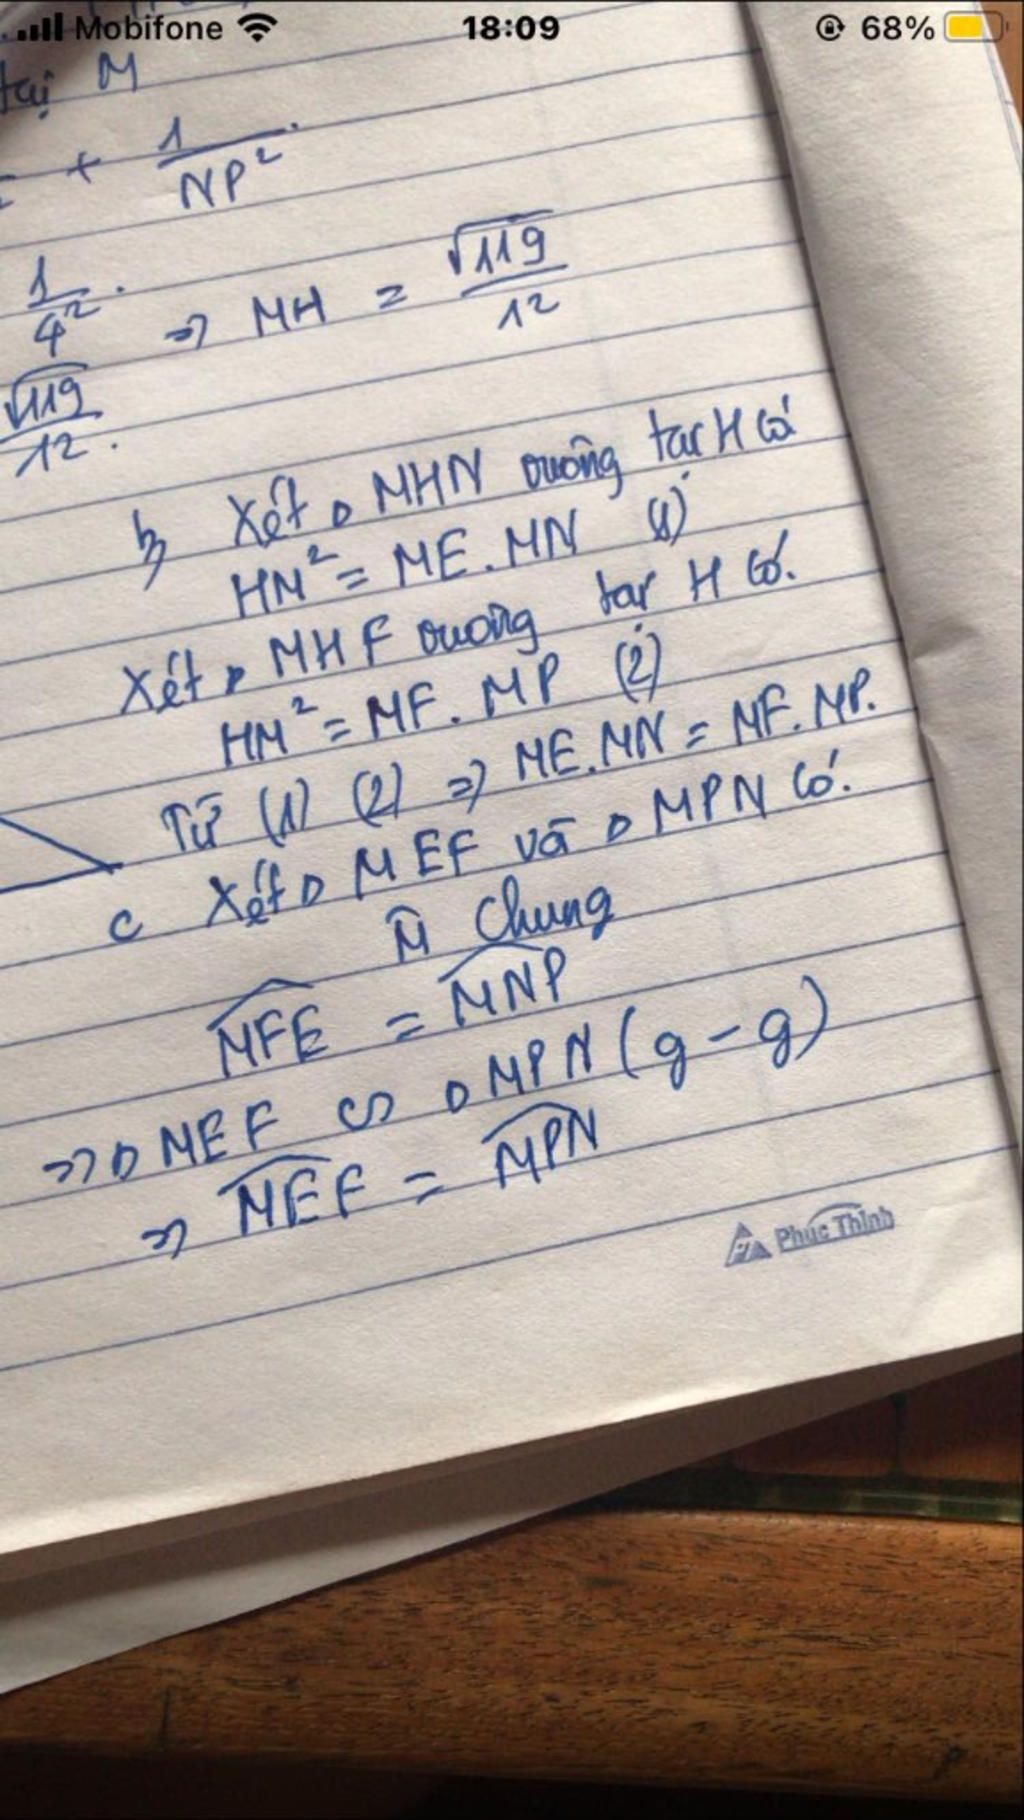 Mobifone 18:09 68%
tại M
+ 1/NP²
1/4² . => MH = √119/12
√119/12 .
b, Xét Δ MHN vuông tại H có
HM² = ME . MN (1)
Xét Δ MHF vuông tại H có.
HM² = MF . MP (2)
Từ (1) (2) => ME.MN = MF.MP.
c Xét Δ MEF và Δ MPN có.
M̂ Chung
MFE = MNP
=> Δ MEF ∽ Δ MPN (g-g)
=> MEF = MPN
Phúc Thịnh